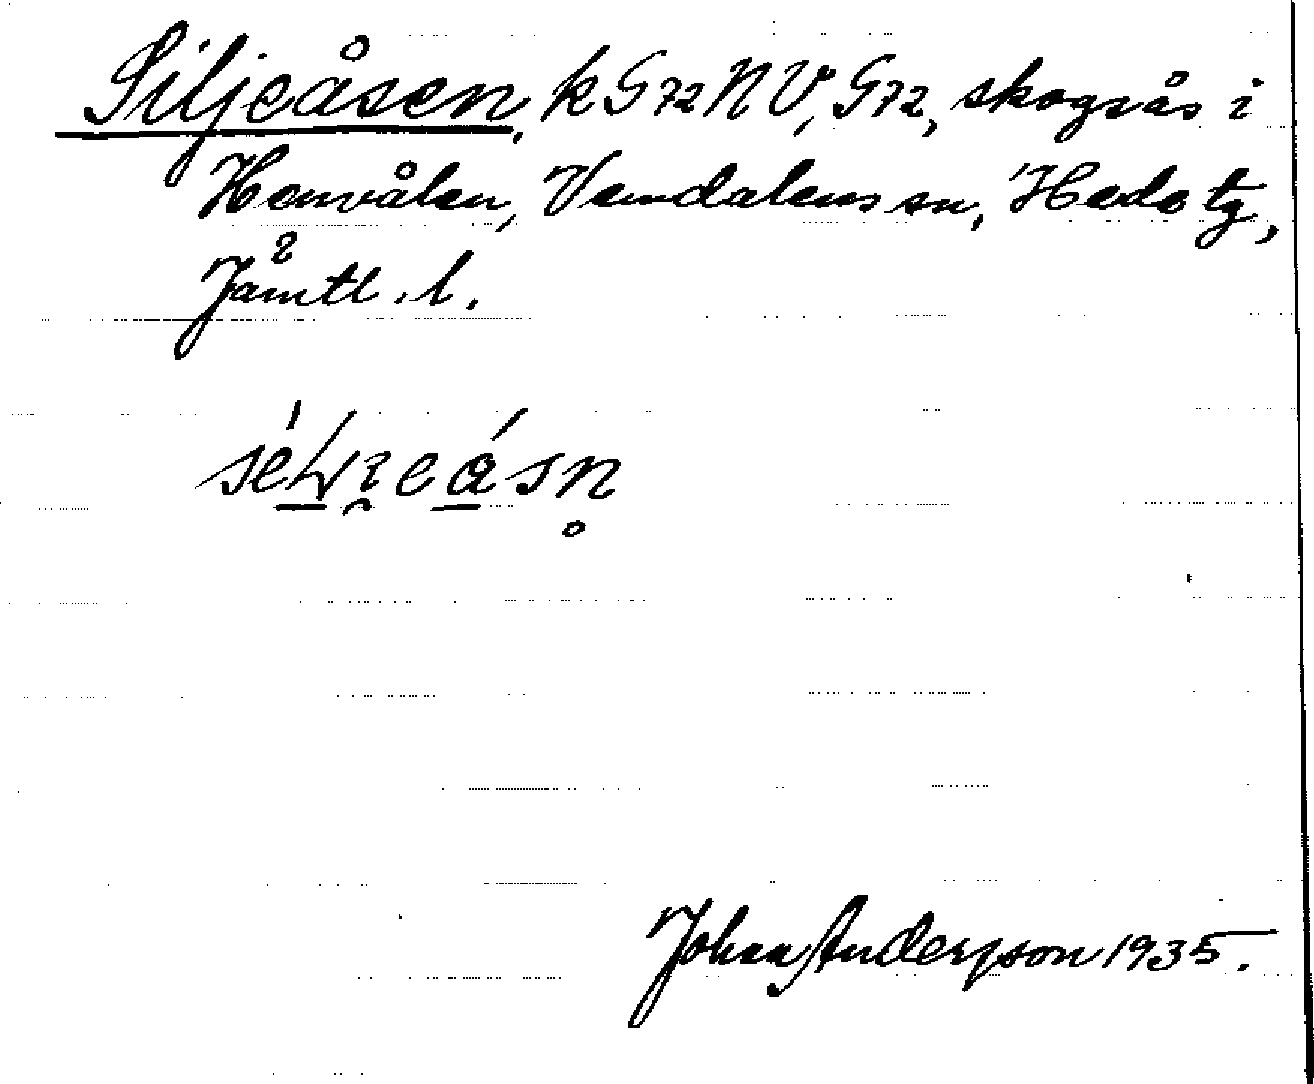 Siljeåsen, k G72NV, G72, skogsås i
Henvålen, Vemdalens sn, Hede tg,
Jämtl. l.
Johan Anderson 1935.